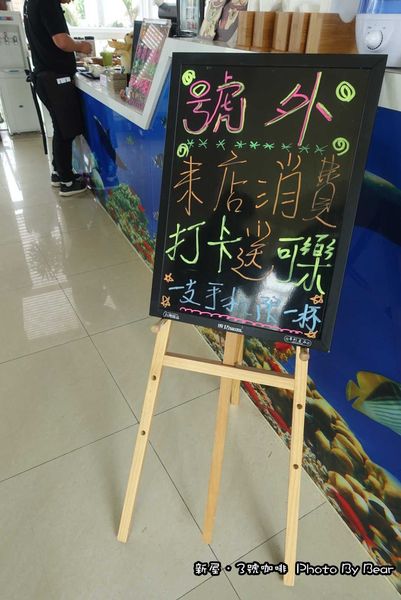 號外
來店消費
打卡送可樂
一支手機限一杯
新屋・3號咖啡 Photo By Bear